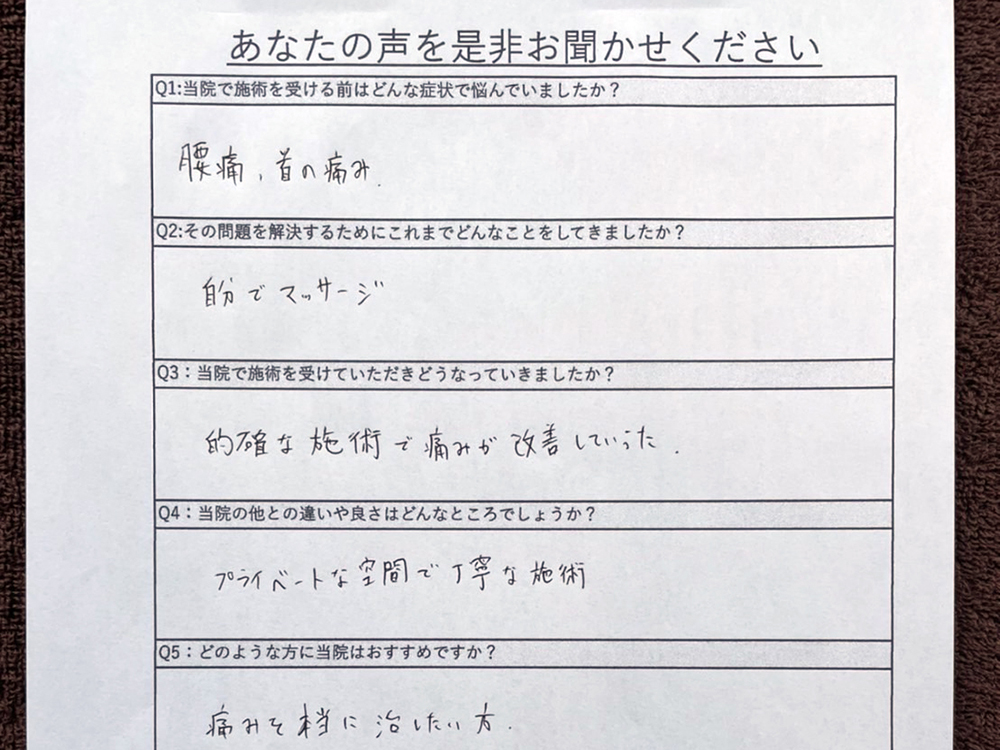 あなたの声を是非お聞かせください
Q1:当院で施術を受ける前はどんな症状で悩んでいましたか？
腰痛、首の痛み.
Q2:その問題を解決するためにこれまでどんなことをしてきましたか？
自分でマッサージ
Q3：当院で施術を受けていただきどうなっていきましたか？
的確な施術で痛みが改善していった.
Q4：当院の他との違いや良さはどんなところでしょうか？
プライベートな空間で丁寧な施術
Q5：どのような方に当院はおすすめですか？
痛みを本当に治したい方.